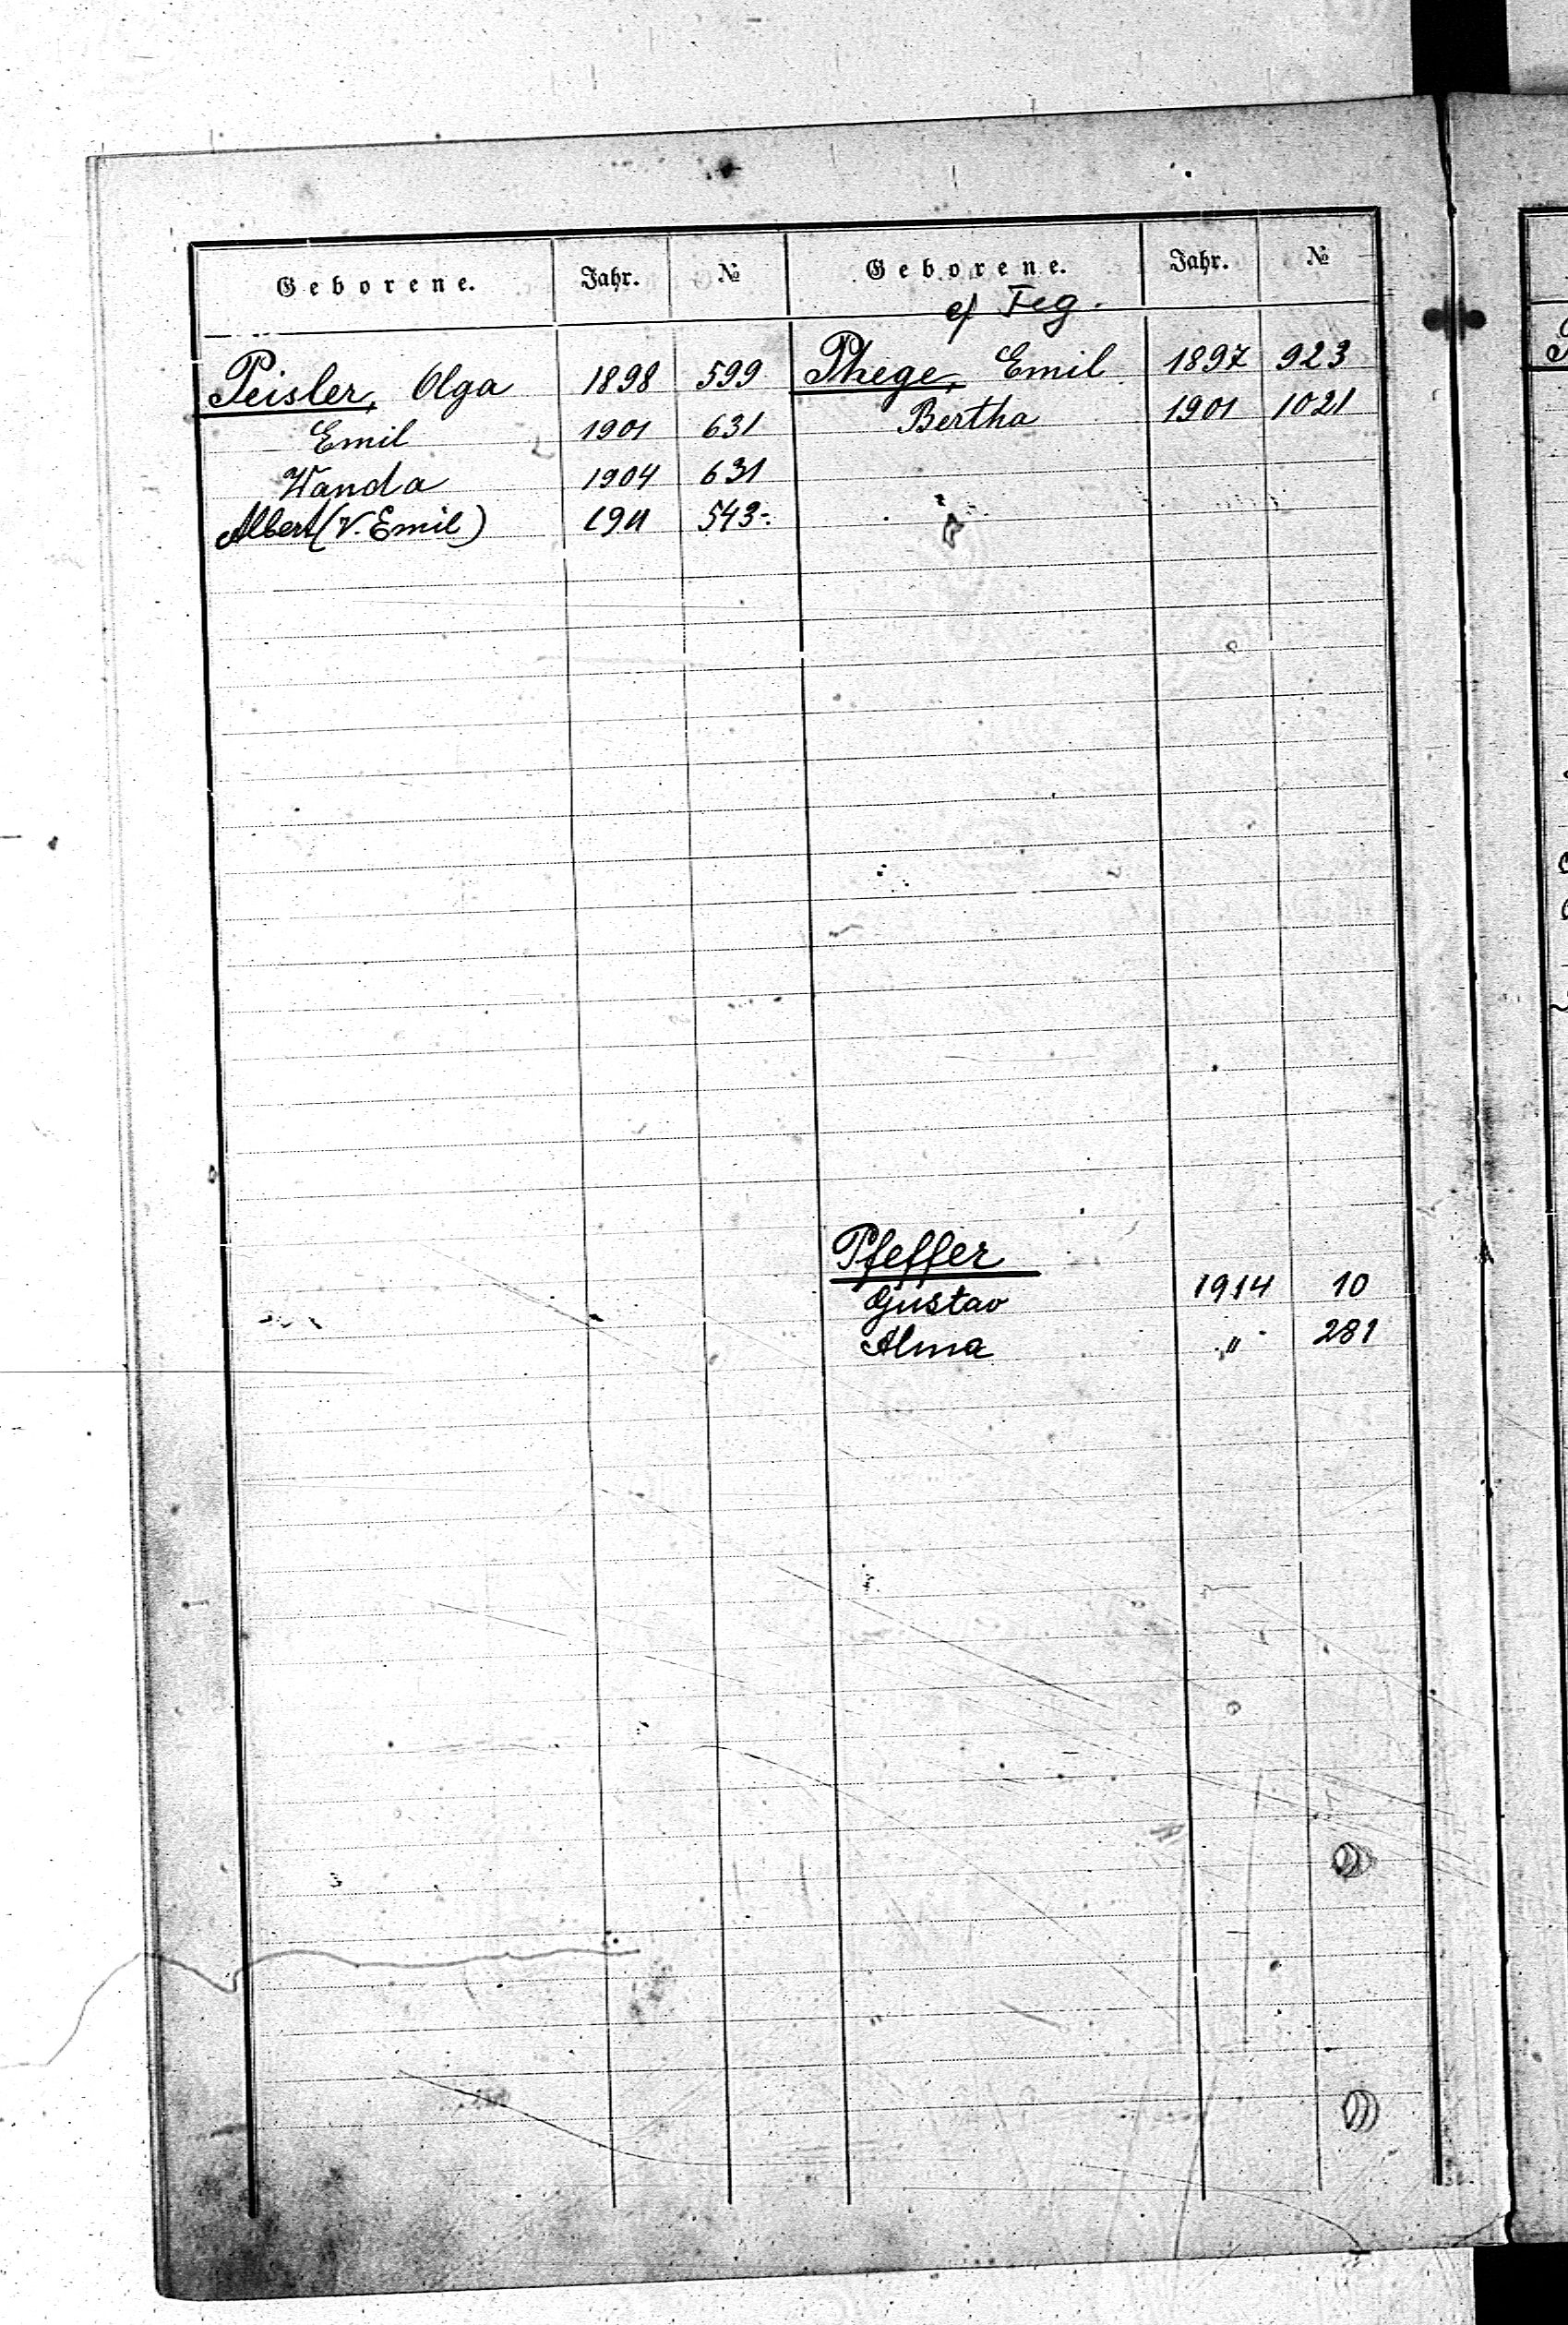 Geborene. Jahr. №
Peisler, Olga 1898 599
Emil 1901 631
Wanda 1904 631
Albert (V. Emil) 1911 543.
Geborene. Jahr. №
cf Feg.
Phege, Emil 1897 923
Bertha 1901 1021
Pfeffer
Gustav 1914 10
Alma " 281